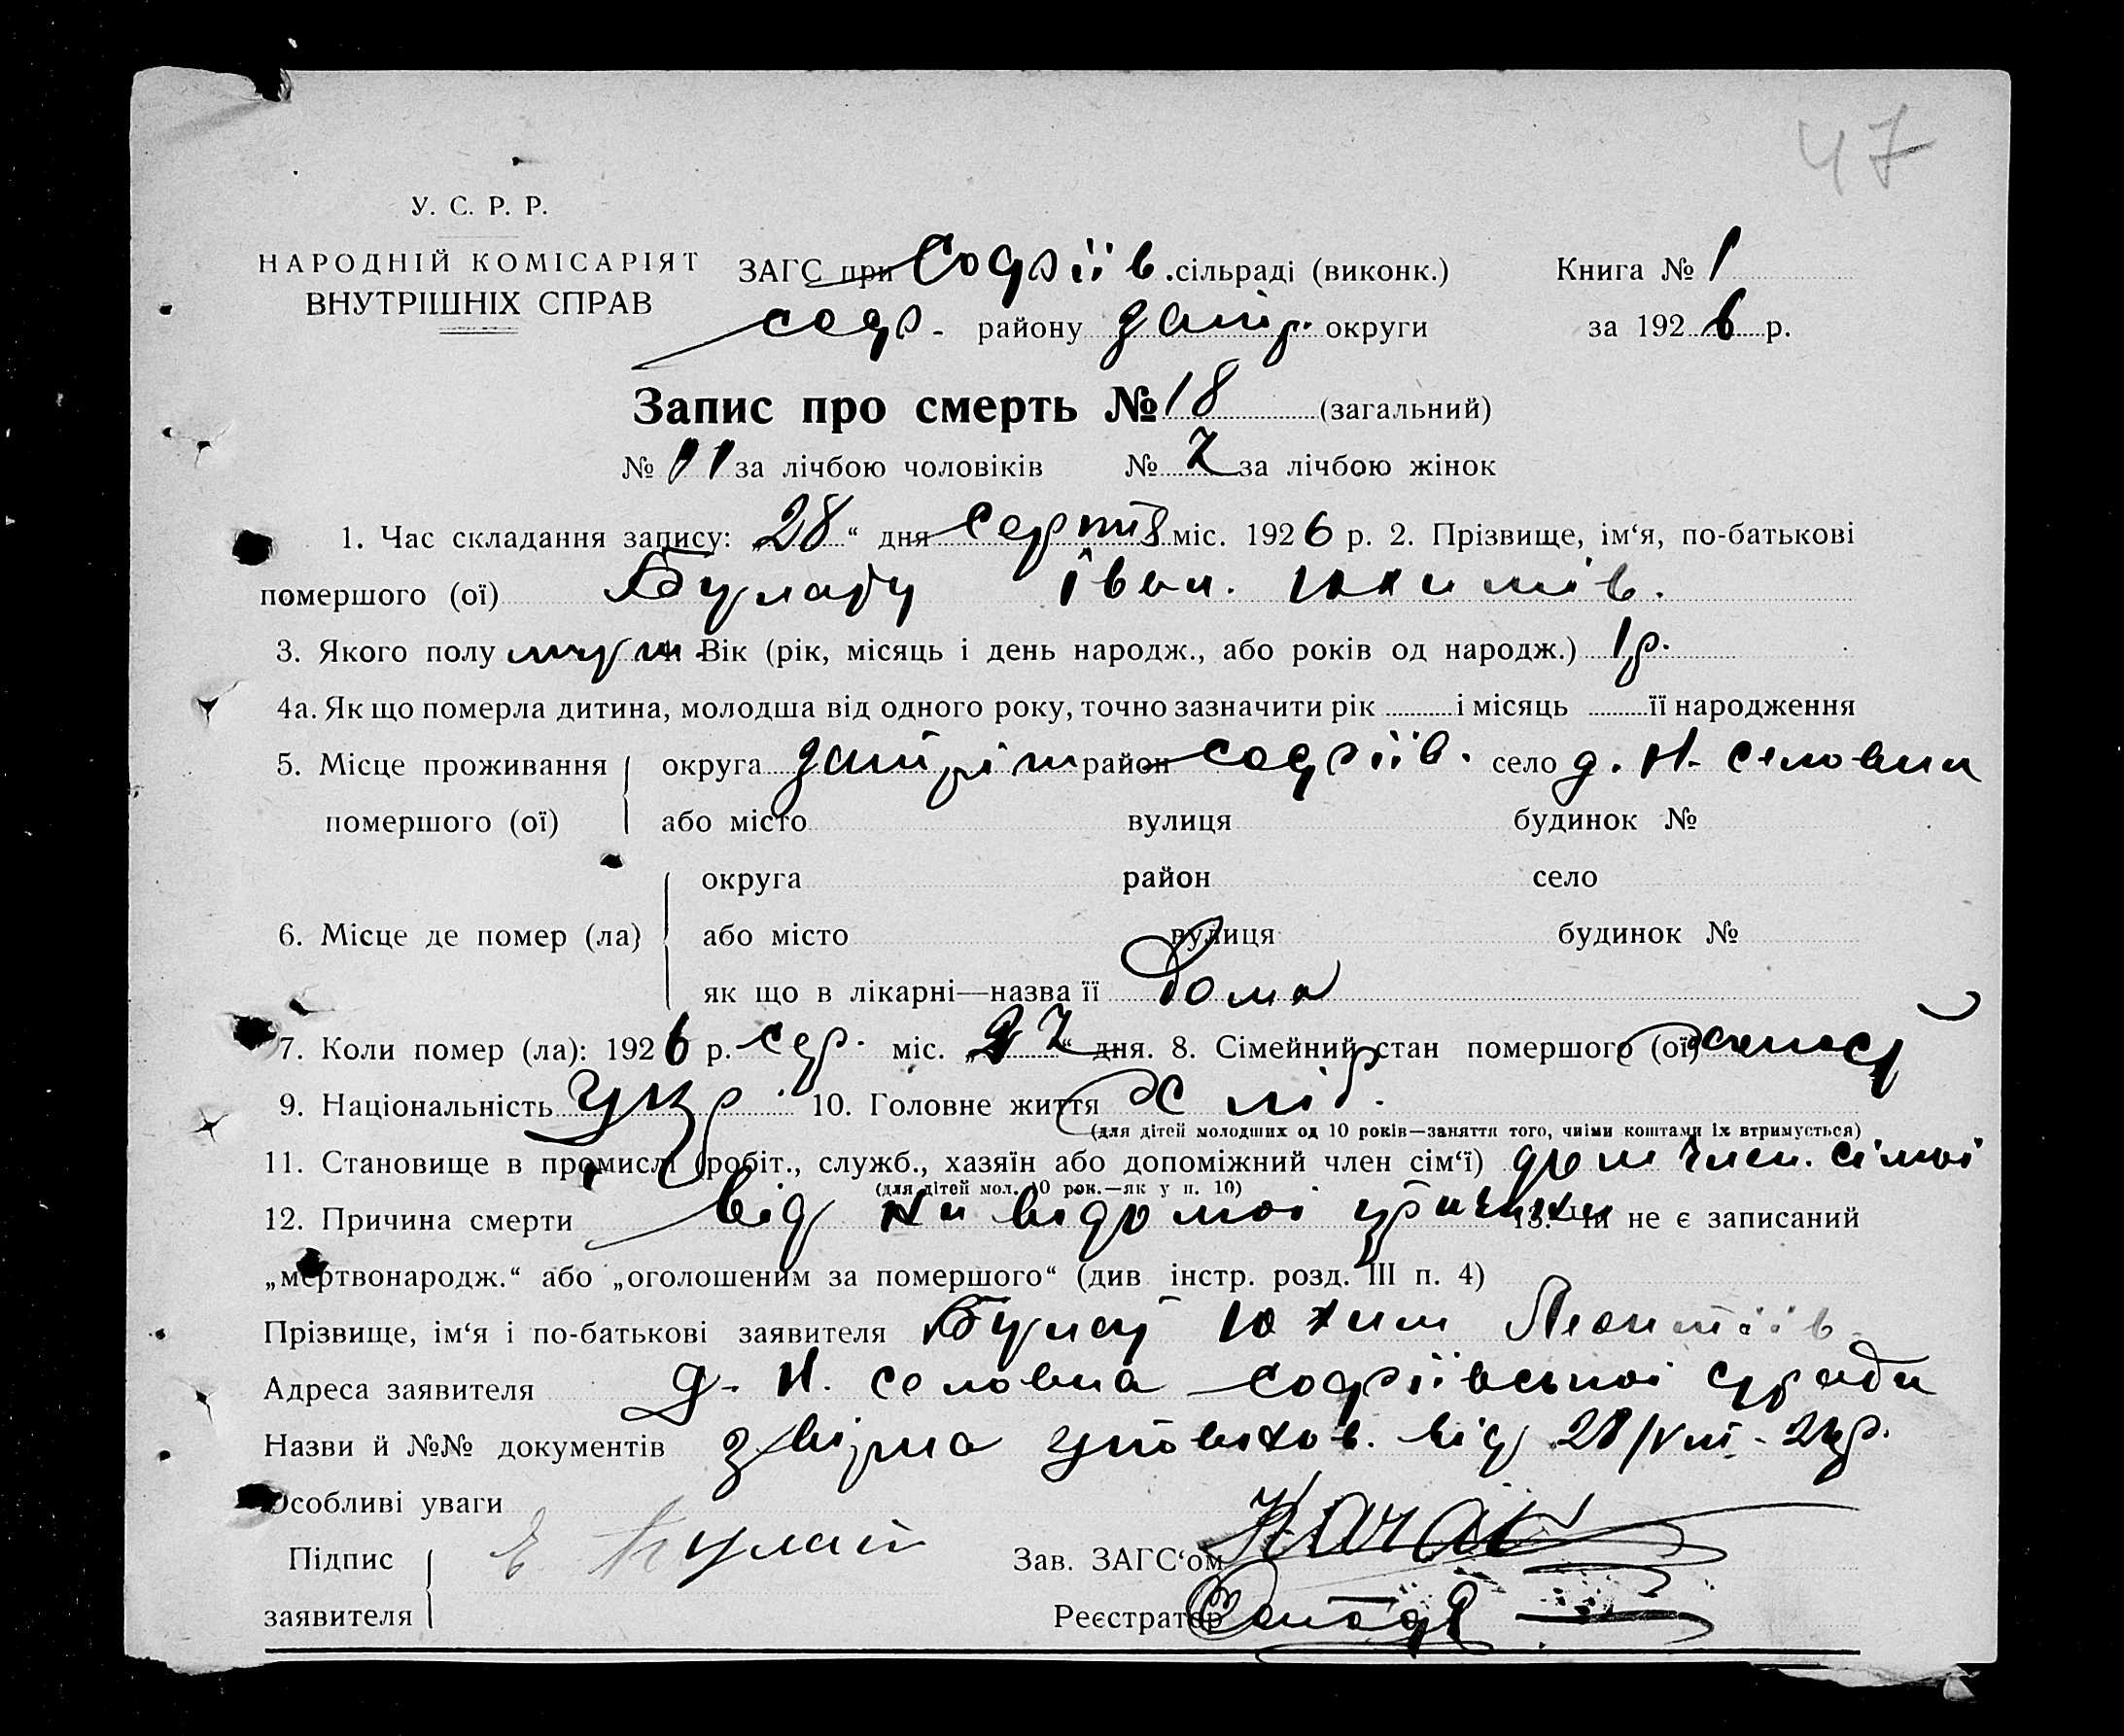 47
У. С. Р. Р.
НАРОДНІЙ КОМІСАРІЯТ
ВНУТРІШНІХ СПРАВ
ЗАГС при Софіїв. сільраді (виконк.) Книга № 1
соф. району Запор. округи за 1926 р.
Запис про смерть № 18 (загальний)
№ 11 за лічбою чоловіків № 7 за лічбою жінок
1. Час складання запису: „28“ дня серпня міс. 1926 р. 2. Прізвище, ім‘я, по-батькові
помершого (ої) Іван. Юхимів.
3. Якого полу муж Вік (рік, місяць і день народж., або років од народж.) 1 р.
4а. Як що померла дитина, молодша від одного року, точно зазначити рік і місяць її народження
5. Місце проживання помершого (ої) округа район Софіїв. село д. Н.
або місто вулиця будинок №
6. Місце де помер (ла) округа район село
або місто вулиця будинок №
як що в лікарні—назва її Дома
7. Коли помер (ла): 1926 р. сер. міс. „27“ дня. 8. Сімейний стан помершого (ої)
9. Національність Укр 10. Головне життя Хліб.
(для дітей молодших од 10 років—заняття того, чиїми коштами їх втримується)
11. Становище в промислі (робіт., служб., хазяїн або допоміжний член сім‘ї) член. сімьї
(для дітей мол. 10 рок.—як у п. 10)
12. Причина смерти від не відомої причини 13. Чи не є записаний
„мертвонародж.“ або „оголошеним за помершого“ (див інстр. розд. III п. 4)
Прізвище, ім‘я і по-батькові заявителя Юхим Леонтіїв
Адреса заявителя д. Н. Софіївської с/ради
Назви й №№ документів від 28/VIII-26р.
Особливі уваги
Підпис заявителя
Зав. ЗАГС‘ом
Реєстратор